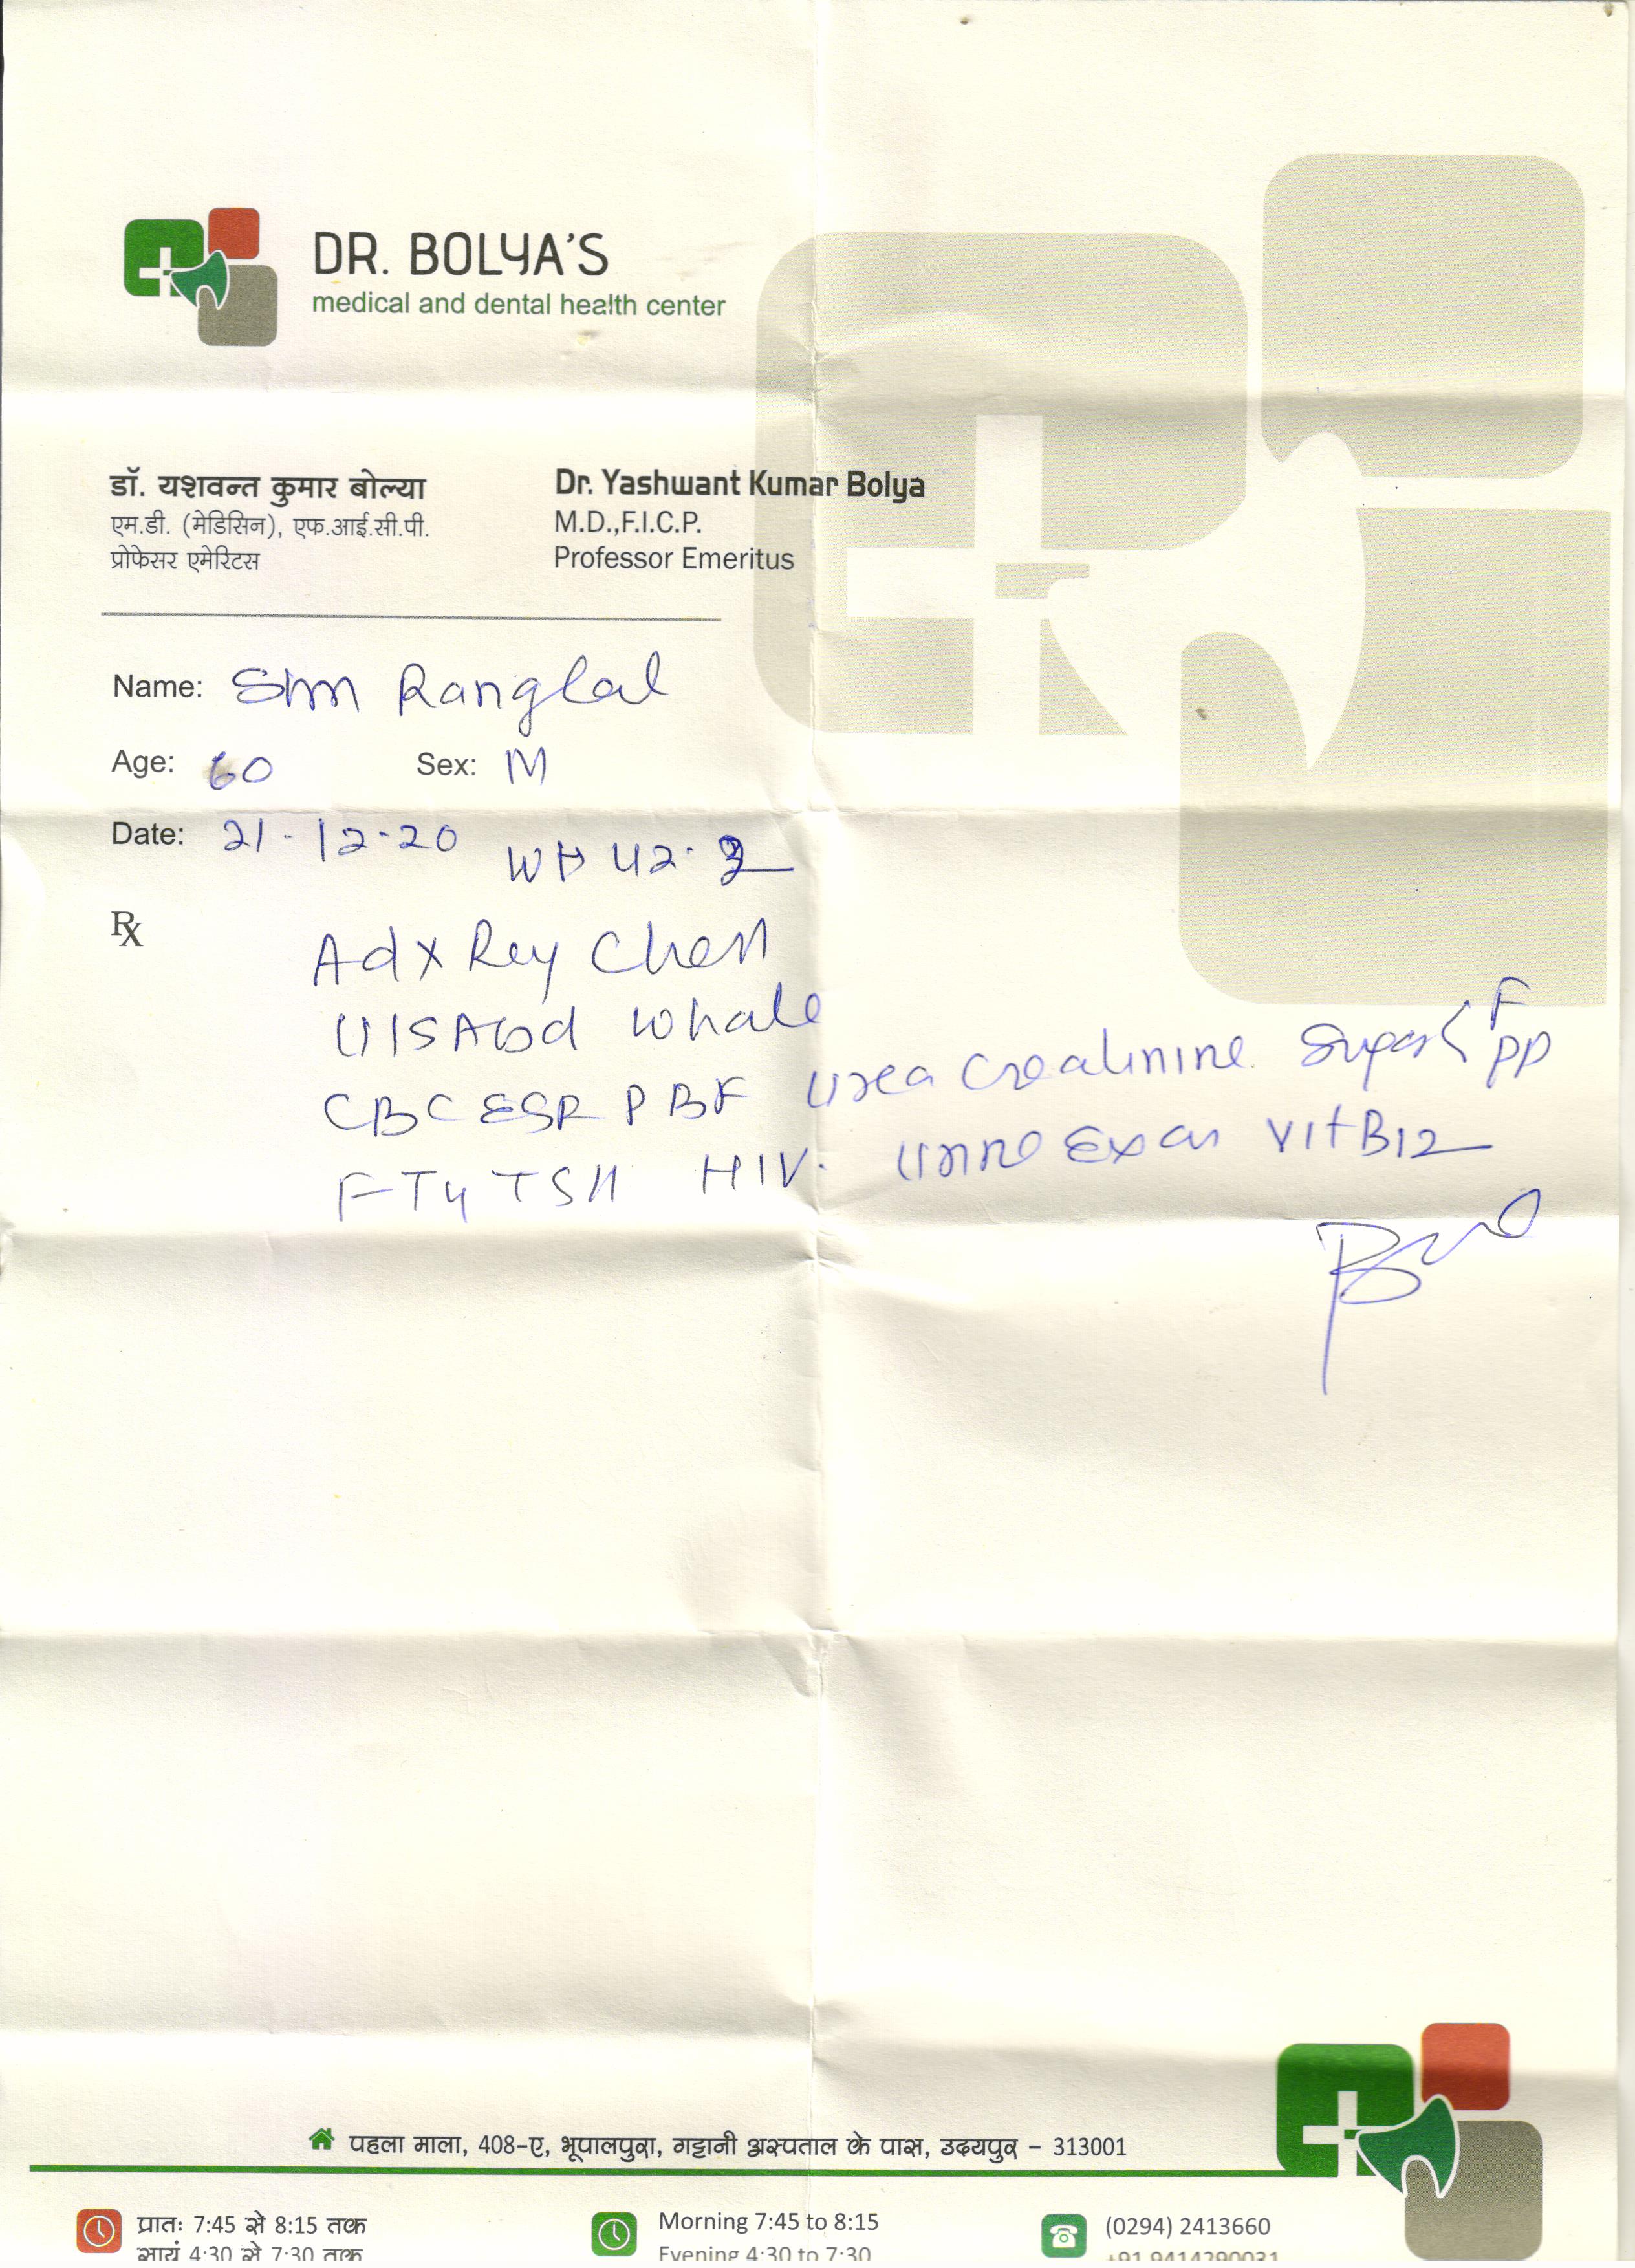 DR. BOLYA'S
medical and dental health center
डॉ. यशवन्त कुमार बोल्या
एम.डी. (मेडिसिन), एफ.आई.सी.पी.
प्रोफेसर एमेरिटस
Dr. Yashwant Kumar Bolya
M.D.,F.I.C.P.
Professor Emeritus
Name: Ranglal
Age: 60 Sex: M
Date: 21-12-20 Wt 42.2
Rx
Adx Ray Chest
U/S Abd Whole
CBC ESR PBF Urea Creatinine Sugar < F PP
FT4 TSH HIV. Urine Exam Vit B12
पहला माला, 408-ए, भूपालपुरा, गट्टानी अस्पताल के पास, उदयपुर - 313001
प्रातः 7:45 से 8:15 तक
सायं 4:30 से 7:30 तक
Morning 7:45 to 8:15
Evening 4:30 to 7:30
(0294) 2413660
+91 9414290031